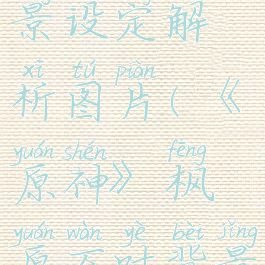 景设定解
xī tú piàn
析图片(《
yuán shén fēng
原神》枫
yuán wàn yè bèi jǐng
原万叶背景